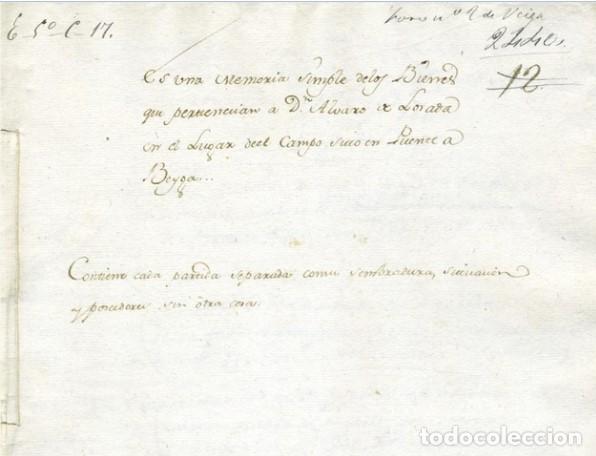 E 5º C 17.
foro nº 2 de Veiga
12
Es una Memoria Simple de los Bienes
que pertenecian a Dn. Alvaro de Losada
en el Lugar deel Campo sito en Puente a
Beyga...
Contiene cada partida separada como sembradura, situacion
y posedores sin otra cosa.
todocoleccion